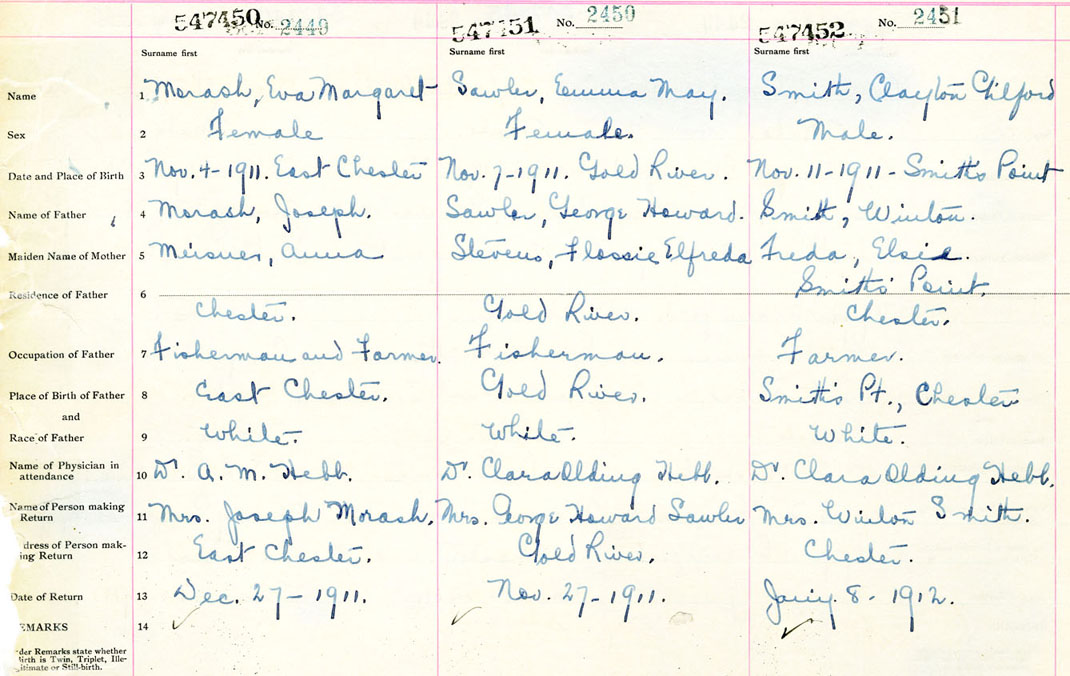 547450 No. 2449 547451 No. 2450 547452 No. 2451
Surname first Surname first Surname first
Name 1 Morash, Eva Margaret Sawler, Emma May. Smith, Clayton Chilford
Sex 2 Female Female. Male.
Date and Place of Birth 3 Nov. 4-1911. East Chester Nov. 7-1911. Gold River. Nov. 11-1911- Smith's Point
Name of Father 4 Morash, Joseph. Sawler, George Howard. Smith, Winton.
Maiden Name of Mother 5 Meisner, Anna Stevens, Flossie Elfreda Freda, Elsie.
Residence of Father 6 Chester. Gold River. Smith's Point, Chester.
Occupation of Father 7 Fisherman and Farmer. Fisherman. Farmer.
Place of Birth of Father 8 East Chester. Gold River. Smith's Pt., Chester
and
Race of Father 9 White. White. White.
Name of Physician in attendance 10 Dr. A. M. Hebb. Dr. Clara Olding Hebb. Dr. Clara Olding Hebb.
Name of Person making Return 11 Mrs. Joseph Morash. Mrs. George Howard Sawler Mrs. Winton Smith.
dress of Person mak-
ing Return 12 East Chester. Gold River. Chester.
Date of Return 13 Dec. 27-1911. Nov. 27-1911. Jany. 8-1912.
EMARKS 14
der Remarks state whether
irth is Twin, Triplet, Ille-
itimate or Still-birth.